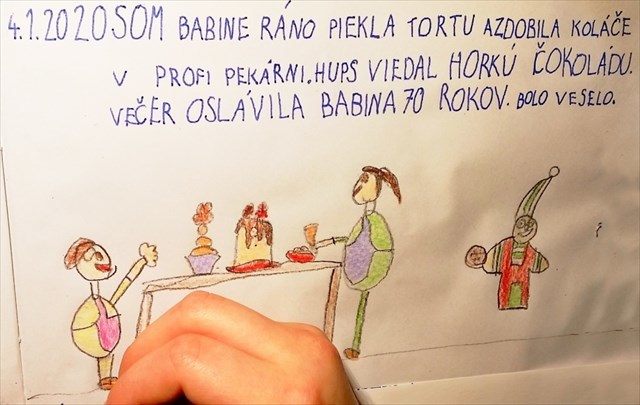 4.1.2020 SOM BABINE RÁNO PIEKLA TORTU AZDOBILA KOLÁČE
V PROFI PEKÁRNI. HUPS VIEDAL HORKÚ ČOKOLÁDU.
VEČER OSLÁVILA BABINA 70 ROKOV. BOLO VESELO.